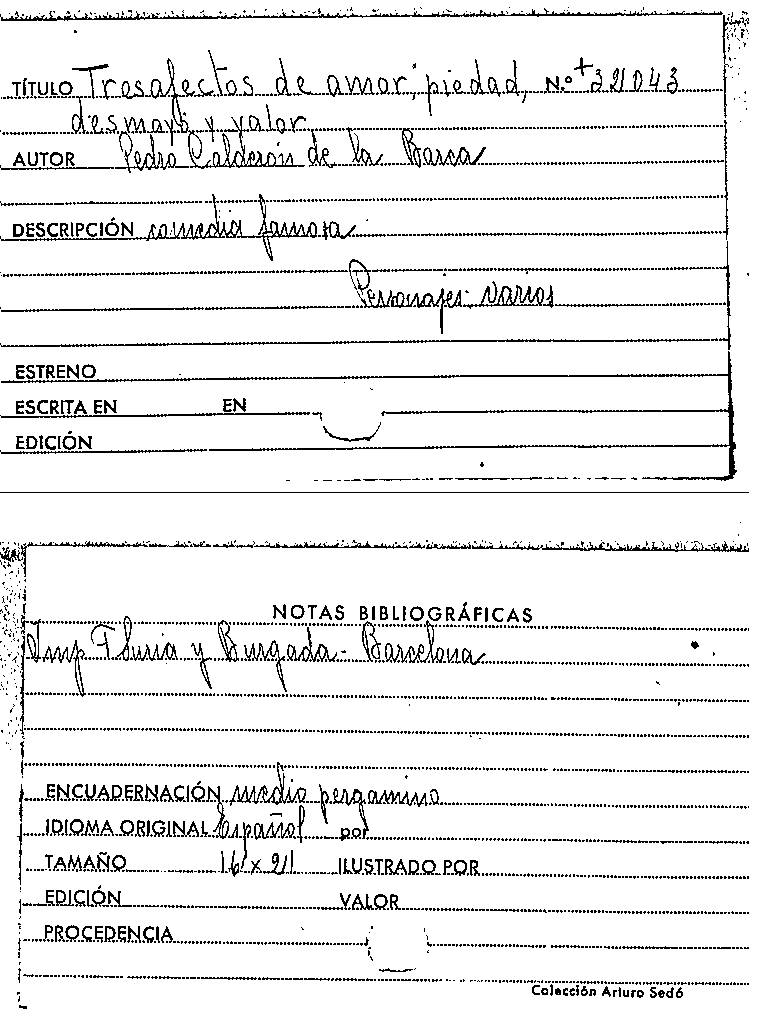 TÍTULO Tres afectos de amor, piedad, N.º +321043
desmayo y valor
AUTOR Pedro Calderón de la Barca
DESCRIPCIÓN comedia famosa.
Personajes: varios
ESTRENO
ESCRITA EN EN
EDICIÓN
NOTAS BIBLIOGRÁFICAS
Imp F Suria y Burgada - Barcelona
ENCUADERNACIÓN medio pergamino
IDIOMA ORIGINAL Español por
TAMAÑO 16 x 21 ILUSTRADO POR
EDICIÓN VALOR
PROCEDENCIA
Colección Arturo Sedó